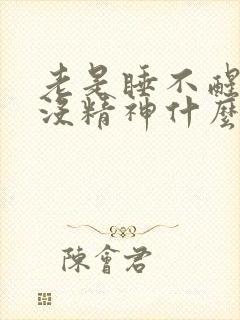 老是睡不醒
没精神什麼
陳會君